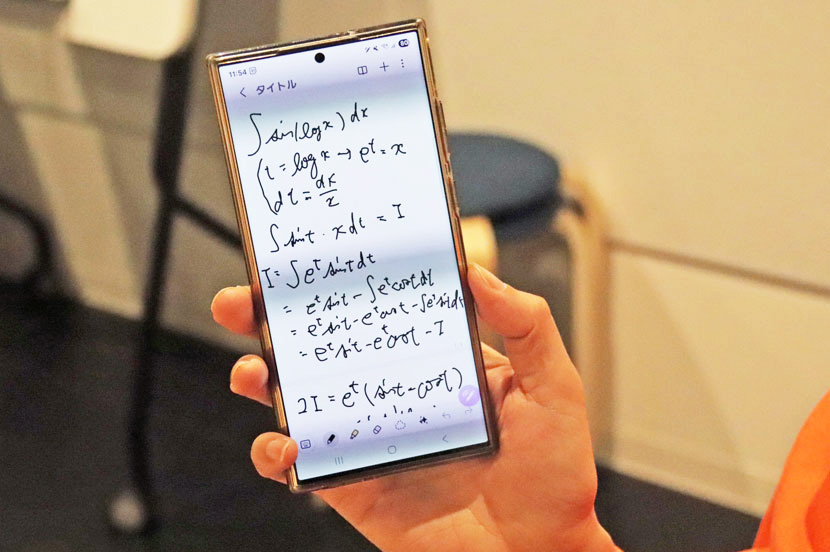 11:54
80
< タイトル
∫ sin(log x) dx
t = log x → e^t = x
dt = dx/x
∫ sin t · x dt = I
I = ∫ e^t sin t dt
= e^t sin t - ∫ e^t cos t dt
= e^t sin t - e^t cos t - ∫ e^t sin t dt
= e^t sin t - e^t cos t - I
2I = e^t (sin t - cos t)